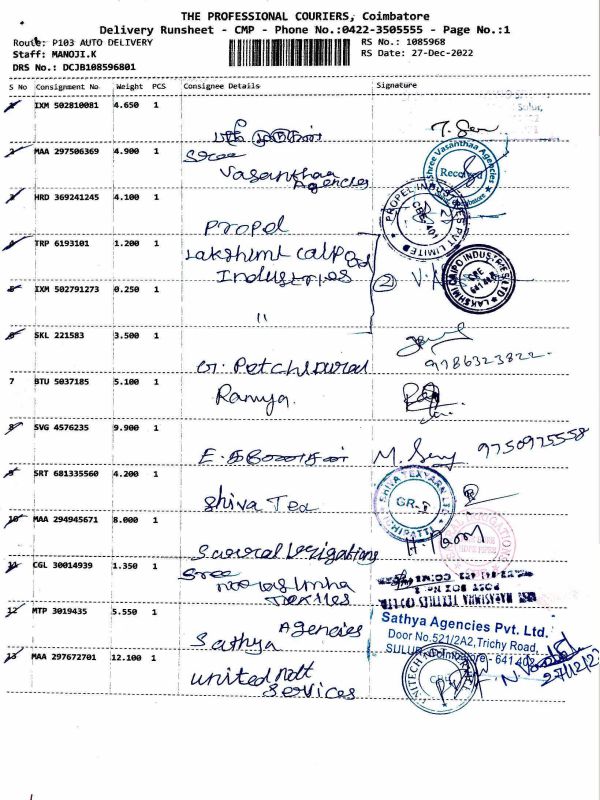 THE PROFESSIONAL COURIERS, Coimbatore
Delivery Runsheet - CMP - Phone No.:0422-3505555 - Page No.:1
Route: P103 AUTO DELIVERY
RS No.: 1085968
Staff: MANOJI.K
RS Date: 27-Dec-2022
DRS No.: DCJB108596801
S No Consignment No Weight PCS Consignee Details Signature
1 IXM 502810081 4.650 1
2 MAA 297506369 4.900 1 Sree
Vasanthaa
Agencies
Shree Vasanthaa Agencies
Received
3 HRD 369241245 4.100 1
Propel
PROPEL INDUSTRIES PVT LIMITED
4 TRP 6193101 1.200 1 Lakshmi Caipo
Industries
2
LAKSHMI CAIPO INDUSTRIES LTD
5 IXM 502791273 0.250 1
"
6 SKL 221583 3.500 1
9786323822
7 BTU 5037185 5.100 1 Ramya.
8 SVG 4576235 9.900 1
M.
9750975558
9 SRT 681335560 4.200 1
Shiva Tex
SHIVA TEXYARN LTD
10 MAA 294945671 8.000 1
11 CGL 30014939 1.350 1 Sree
Narasimha
Textiles
POST BOX No. 2
12 MTP 3019435 5.550 1 Agencies
Sathya
Sathya Agencies Pvt. Ltd.
Door No.521/2A2,Trichy Road,
SULUR, Coimbatore - 641 402
13 MAA 297672701 12.100 1
United
Services
27/12/22